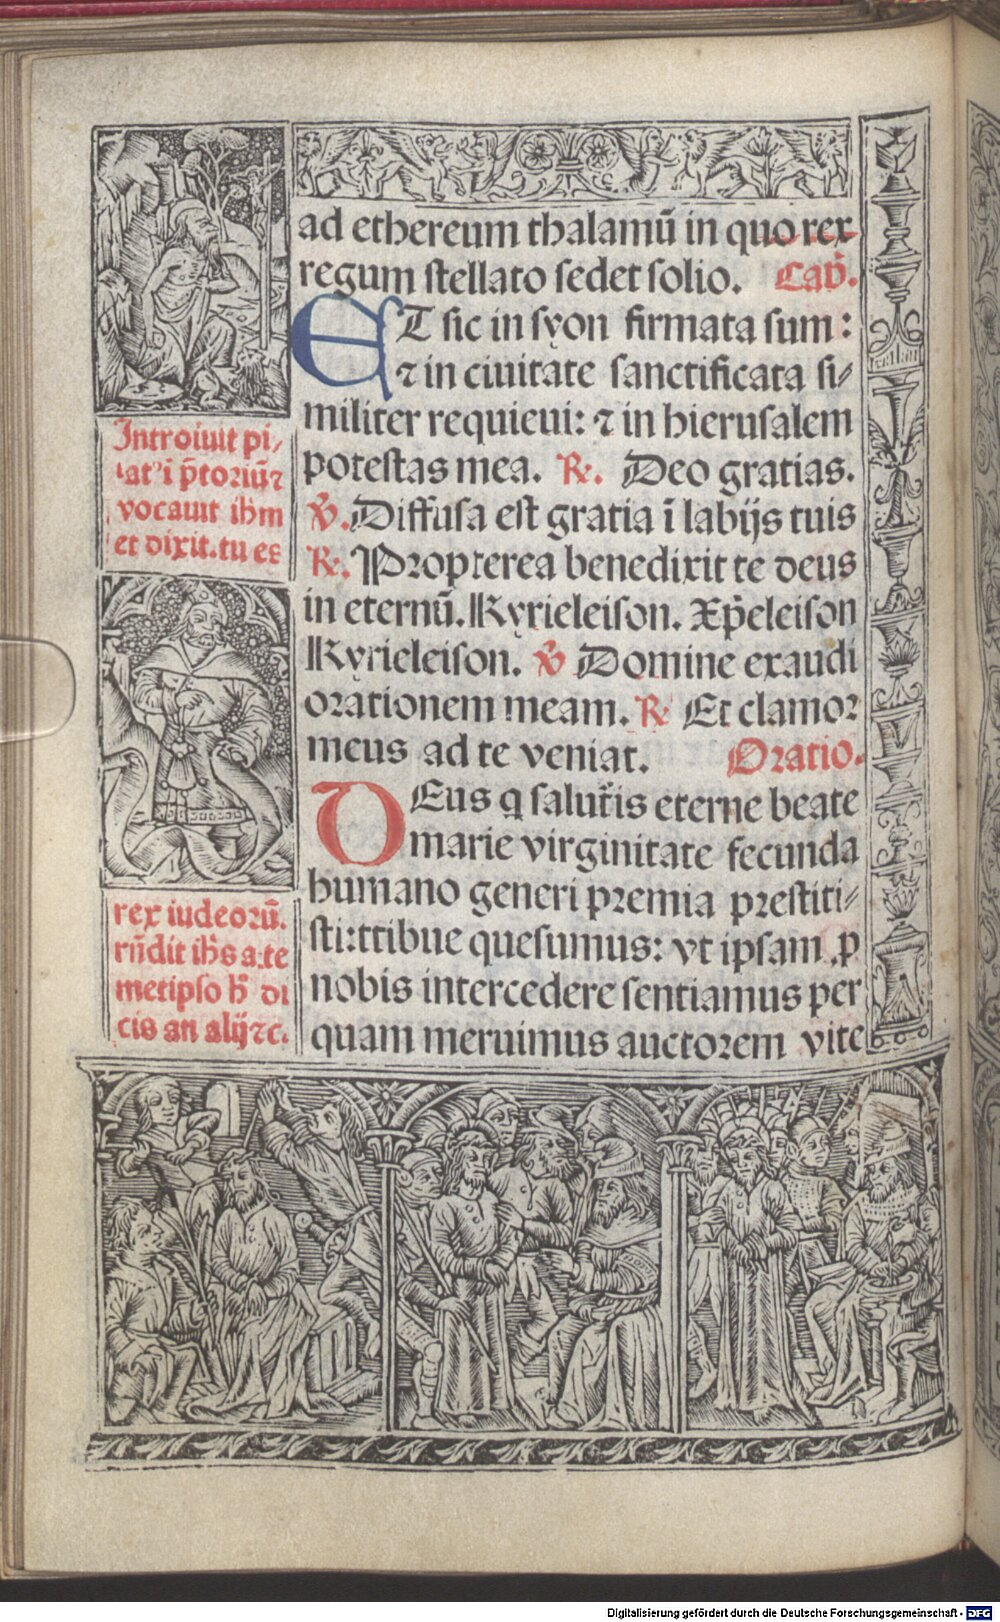 ad ethereum thalamū in quo rex
regum stellato sedet solio. Cap̄.
ET sic in syon firmata sum:
⁊ in ciuitate sanctificata si⸗
militer requieui: ⁊ in hierusalem
potestas mea. ℟. Deo gratias.
℣. Diffusa est gratia ī labijs tuis
℟. Propterea benedixit te deus
in eternū. Kyrieleison. Xp̄eleison
Kyrieleison. ℣ Domine exaudi
orationem meam. ℟ Et clamor
meus ad te veniat. Oratio.
DEus q salut̄is eterne beate
marie virginitate fecunda
humano generi premia prestiti⸗
sti: tribue quesumus: vt ipsam .p
nobis intercedere sentiamus per
quam meruimus auctorem vite
Introiuit pi⸗
lat' ī p̄toriū ⁊
vocauit ihm̄
et dixit. tu es
rex iudeorū.
rn̄dit ihs̄ a te
metipso h̄ di
cis an alij ⁊c.
Digitalisierung gefördert durch die Deutsche Forschungsgemeinschaft - DFG